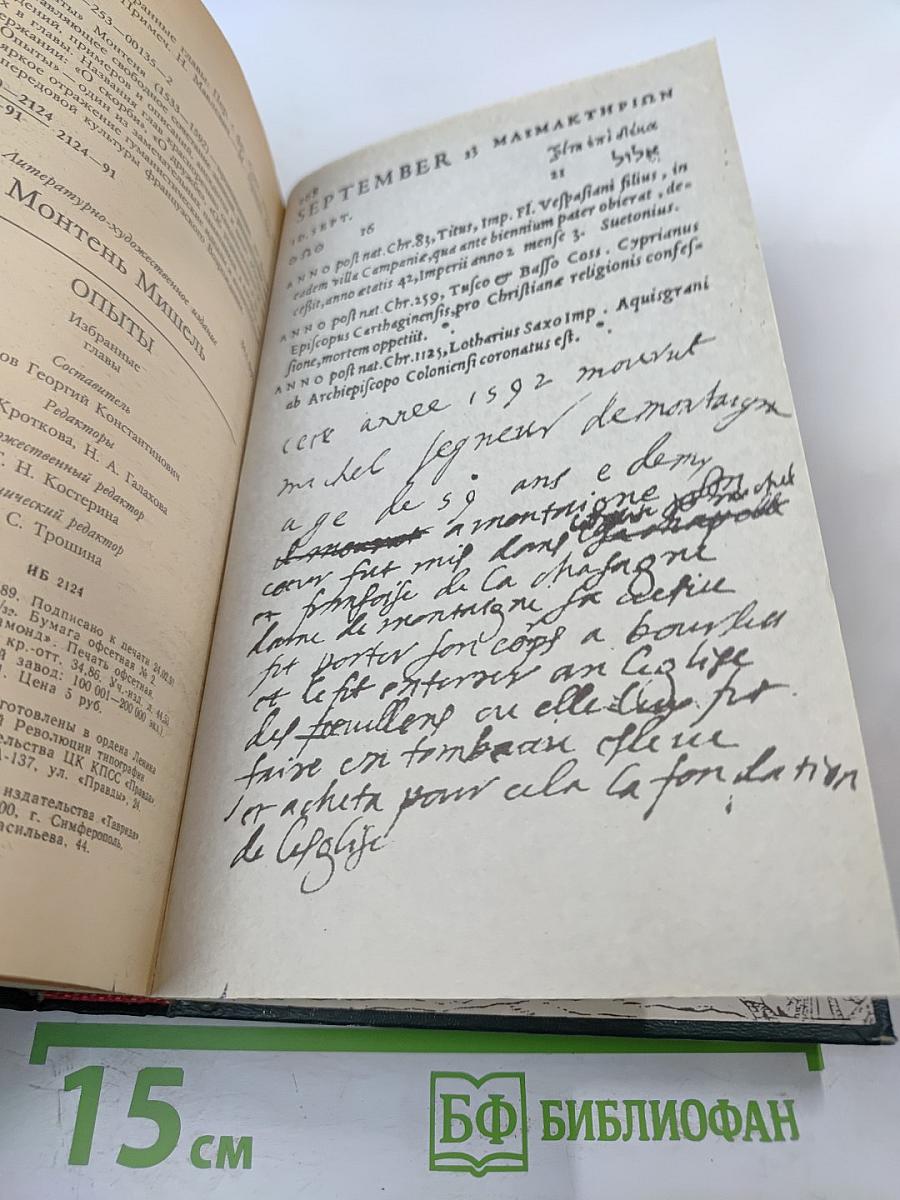 бранные главы. Пер.
Примеч. Н. Мавлевич
253—00135—2
Опыты» Монтеня (1533—1592)
Литературно-художественное издание
Монтень Мишель
ОПЫТЫ
Избранные
главы
Составитель
ов Георгий Константинович
Редакторы
Кроткова, Н. А. Галахова
жественный редактор
Г. Н. Костерина
нический редактор
С. Трошина
ИБ 2124
89. Подписано к печати
/32. Бумага офсетная № 2.
амонд». Печать офсетная.
кр.-отт. 34,86. Уч.-изд. л. 44,51
й завод: 100 001—200 000 экз.).
Цена 5 руб.
готовлены в ордена Ленина
й Революции типографии
ельства ЦК КПСС «Правда».
А-137, ул. «Правды», 24
издательства «Таврида»
00, г. Симферополь,
асильева, 44.
268
SEPTEMBER 13 ΜΑΙΜΑΚΤΗΡΙΩΝ
ID. SEPT. 16 21 אלול
ANNO post nat. Chr. 83, Titus, Imp. Fl. Vespasiani filius, in
eadem villa Campaniæ, qua ante biennium pater obierat, de-
cessit, anno ætatis 42, Imperii anno 2 mense 3. Suetonius.
ANNO post nat. Chr. 259, Tusco & Basso Coss. Cyprianus
Episcopus Carthaginensis, pro Christianæ religionis confes-
sione, mortem oppetiit.
ANNO post nat. Chr. 1125, Lotharius Saxo Imp. Aquisgrani
ab Archiepiscopo Coloniensi coronatus est.
cete annee 1592 mourut
michel segneur demontaigne
age de 59 ans e demy
a montaigne son
cœur fut mis dans michel
et fransoise de la chasagne
dame de montaigne sa
fit porter son corps a bourdeus
et le fit enterrer an leglise
des feuillens ou elle luy fit
faire en tombeau esleve
et acheta pour cela la fondation
de leglise
15 см
БФ БИБЛИОФАН